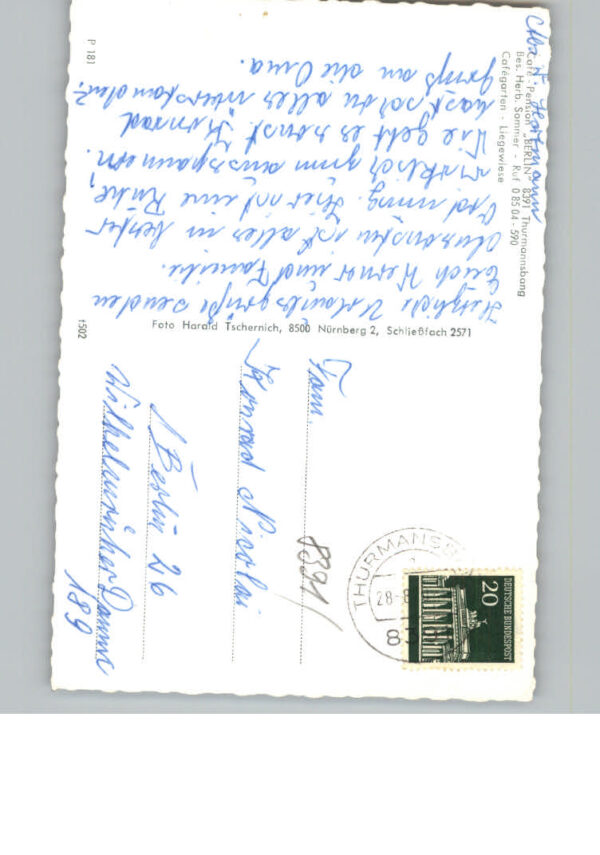 Café - Pension „BERLIN" 8391 Thurmannsbang
Bes. Herb. Sammer - Ruf 0 85 04 - 590
Cafégarten - Liegewiese
P 181
Herzliche Urlaubsgrüße senden
Euch Werner und Familie.
Ansonsten ist alles in bester
Ordnung. Hier ist eine Ruhe,
wirklich zum ausspannen.
Wie geht es sonst Konrad
hast du alles überstanden?
Gruß an die Oma.
Hartmann
Foto Harald Tschernich, 8500 Nürnberg 2, Schließfach 2571
1502
Fam.
Konrad Nicolai
1 Berlin 26
Wilhelmsruher Damm
189
8391
THURMANSB
28-8
83
20
DEUTSCHE BUNDESPOST